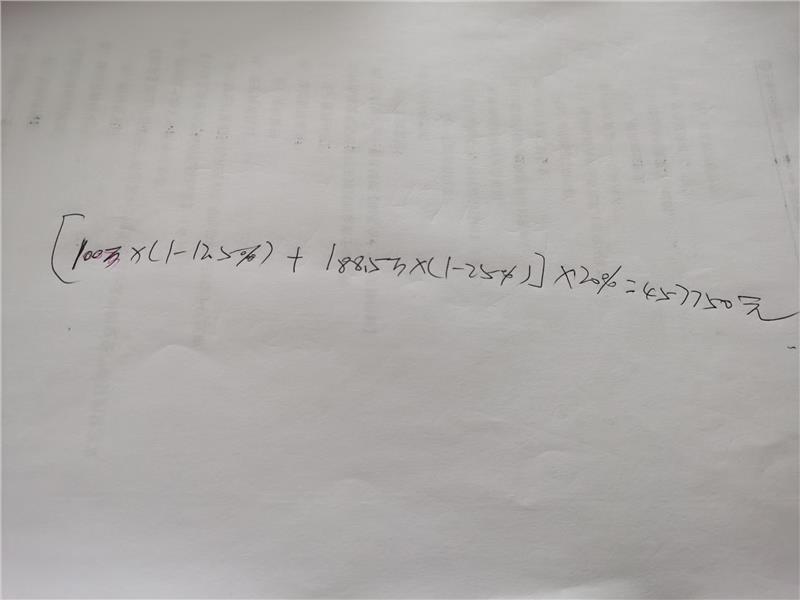 [100万×(1-12.5%)+188.5万×(1-25%)]×20%=457750元